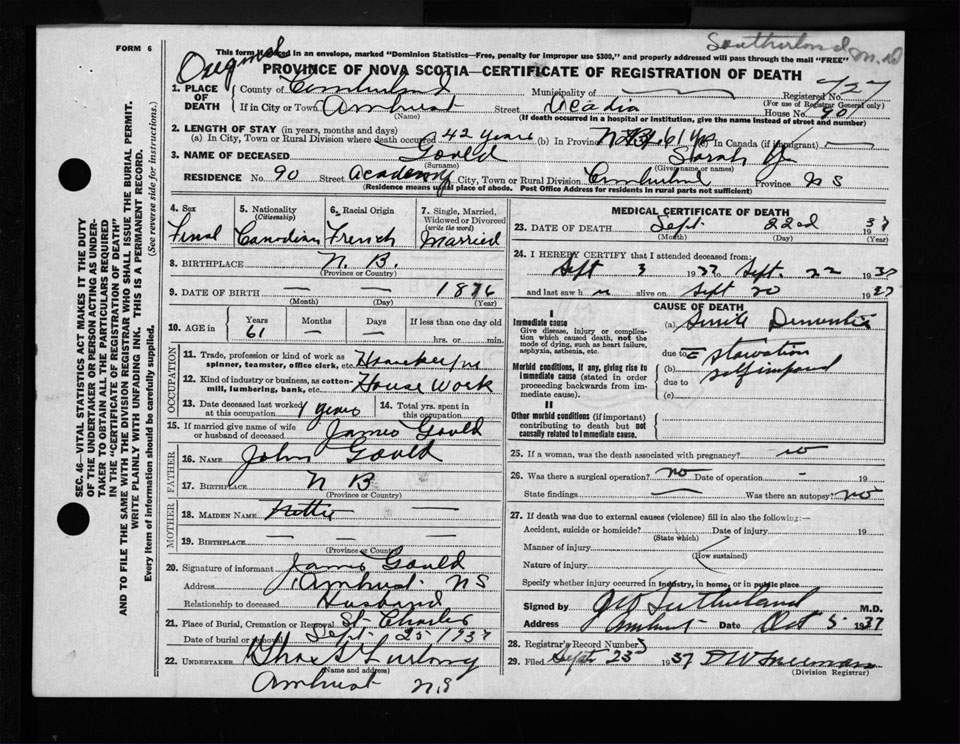 Southerland M.D
FORM 6
Original
This form if placed in an envelope, marked "Dominion Statistics—Free, penalty for improper use $300," and properly addressed will pass through the mail "FREE"
PROVINCE OF NOVA SCOTIA—CERTIFICATE OF REGISTRATION OF DEATH
1. PLACE OF DEATH County of Cumberland Municipality of — Registered No. 727
(For use of Registrar General only)
If in City or Town Amherst Street Acadia House No. 90
(Name) (If death occurred in a hospital or institution, give the name instead of street and number)
2. LENGTH OF STAY (in years, months and days)
(a) In City, Town or Rural Division where death occurred 42 years (b) In Province 61 yrs (c) In Canada (if immigrant) —
3. NAME OF DECEASED Gould Sarah
(Surname) (Given name or names)
RESIDENCE No. 90 Street Academy City, Town or Rural Division Cumberland Province NS
(Residence means usual place of abode. Post Office Address for residents in rural parts not sufficient)
SEC. 46—VITAL STATISTICS ACT MAKES IT THE DUTY
OF THE UNDERTAKER OR PERSON ACTING AS UNDER-
TAKER TO OBTAIN ALL THE PARTICULARS REQUIRED
IN THE "CERTIFICATE OF REGISTRATION OF DEATH"
AND TO FILE THE SAME WITH THE DIVISION REGISTRAR WHO SHALL ISSUE THE BURIAL PERMIT.
WRITE PLAINLY WITH UNFADING INK. THIS IS A PERMANENT RECORD.
Every item of information should be carefully supplied. (See reverse side for instructions.)
4. Sex 5. Nationality 6. Racial Origin 7. Single, Married,
(Citizenship) Widowed or Divorced
(write the word)
Femal Canadian French Married
8. BIRTHPLACE N. B.
(Province or Country)
9. DATE OF BIRTH — — 1876
(Month) (Day) (Year)
10. AGE in Years Months Days If less than one day old
61 — — hrs. or min.
OCCUPATION
11. Trade, profession or kind of work as
spinner, teamster, office clerk, etc. Housekeeping
12. Kind of industry or business, as cotton-
mill, lumbering, bank, etc. House Work
13. Date deceased last worked at this occupation 1 years 14. Total yrs. spent in this occupation
15. If married give name of wife
or husband of deceased James Gould
FATHER
16. Name John Gould
17. Birthplace N B
(Province or Country)
MOTHER
18. Maiden Name —
19. Birthplace —
(Province or Country)
20. Signature of informant James Gould
Address Amherst NS
Relationship to deceased Husband
21. Place of Burial, Cremation or Removal St. Charles
Date of burial or removal Sept 25 1937
22. UNDERTAKER Chas
(Name and address)
Amherst N.S
MEDICAL CERTIFICATE OF DEATH
23. DATE OF DEATH Sept 22nd 1937
(Month) (Day) (Year)
24. I HEREBY CERTIFY that I attended deceased from:
Sept 3 1937 to Sept 22 1937
and last saw h alive on Sept 20 1937
CAUSE OF DEATH
I
Immediate cause
Give disease, injury or complica-
tion which caused death, not the
mode of dying, such as heart failure,
asphyxia, asthenia, etc.
(a) Senile Dementia
due to starvation
Morbid conditions, if any, giving rise to
immediate cause (stated in order
proceeding backwards from im-
mediate cause).
(b) self imposed
due to
(c)
II
Other morbid conditions (if important)
contributing to death but not
causally related to immediate cause.
25. If a woman, was the death associated with pregnancy? no
26. Was there a surgical operation? no Date of operation - 19
State findings — Was there an autopsy? no
27. If death was due to external causes (violence) fill in also the following:—
Accident, suicide or homicide? Date of injury 19
(State which)
Manner of injury
(How sustained)
Nature of injury
Specify whether injury occurred in industry, in home, or in public place
Signed by Sutherland M.D.
Address Amherst Date Oct 5 1937
28. Registrar's Record Number
29. Filed Sept 23 1937 Freeman
(Division Registrar)